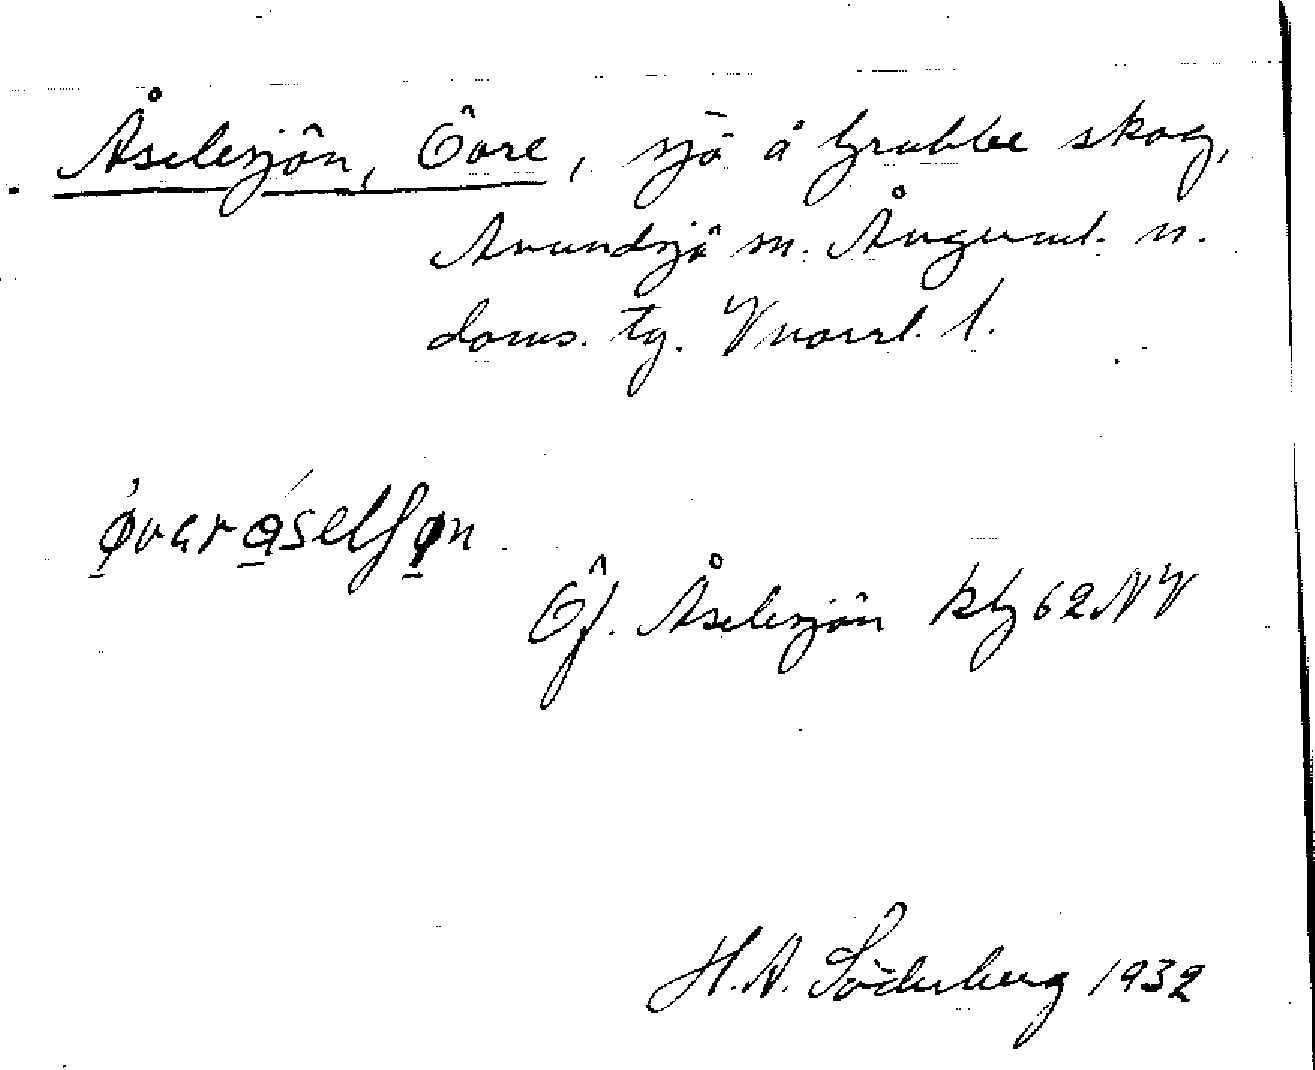 Åselesjön, Övre, sjö å Grubbe skog,
Anundsjö sn. Ångerml. n.
doms. tg. Vnorrl. l.
øvaråselʃøn
Öf. Åselesjön kbl 62 NV
H.A. Söderberg 1932